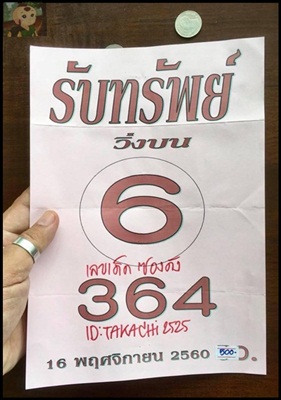 รับทรัพย์
วิ่งบน
6
เลขเด็ด ซองดัง
364
ID:TAKACHi 2525
16 พฤศจิกายน 2560
500-